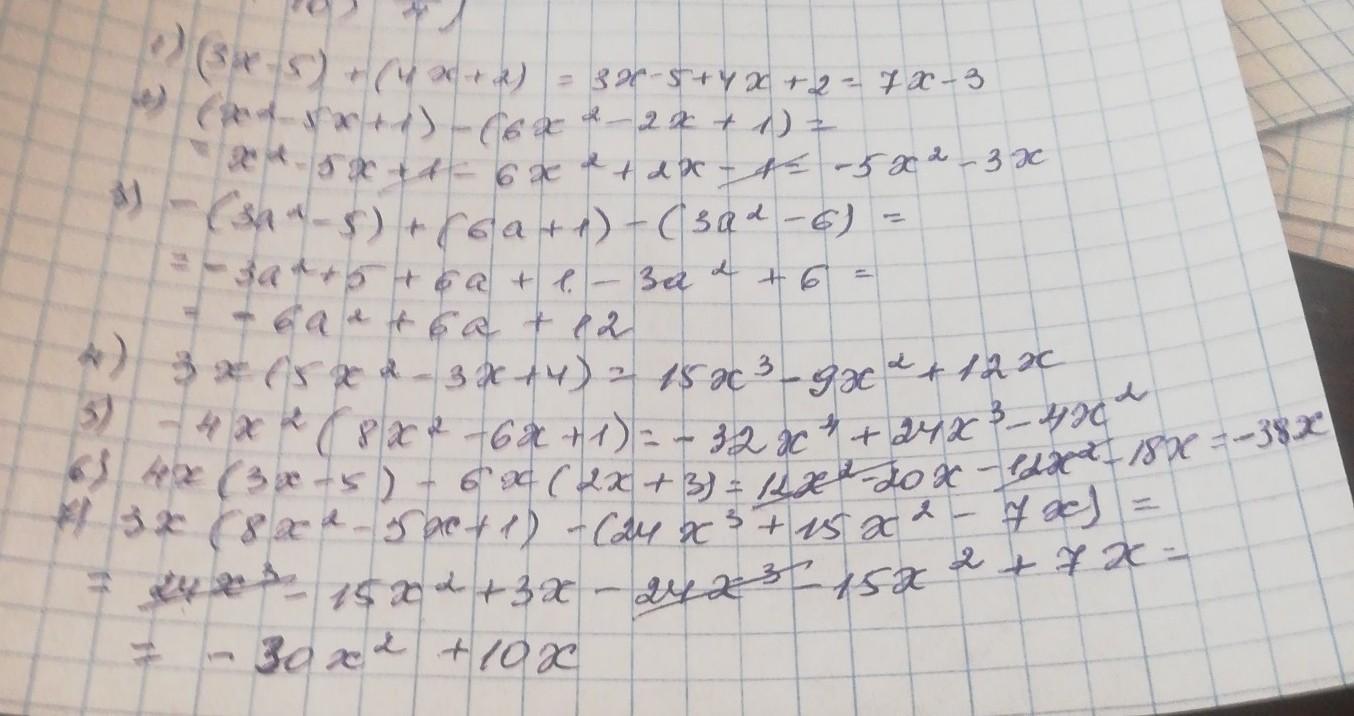 1) (3x-5) + (4x+2) = 3x-5+4x+2 = 7x-3
2) (x²-5x+1) - (6x²-2x+1) =
= x²-5x+1-6x²+2x-1 = -5x²-3x
3) -(3a²-5) + (6a+1) - (3a²-6) =
= -3a²+5+6a+1-3a²+6 =
= -6a²+6a+12
4) 3x(5x²-3x+4) = 15x³-9x²+12x
5) -4x²(8x²-6x+1) = -32x⁴+24x³-4x²
6) 4x(3x-5) - 6x(2x+3) = 12x²-20x-12x²-18x = -38x
7) 3x(8x²-5x+1) - (24x³+15x²-7x) =
= 24x³-15x²+3x-24x³-15x²+7x =
= -30x²+10x